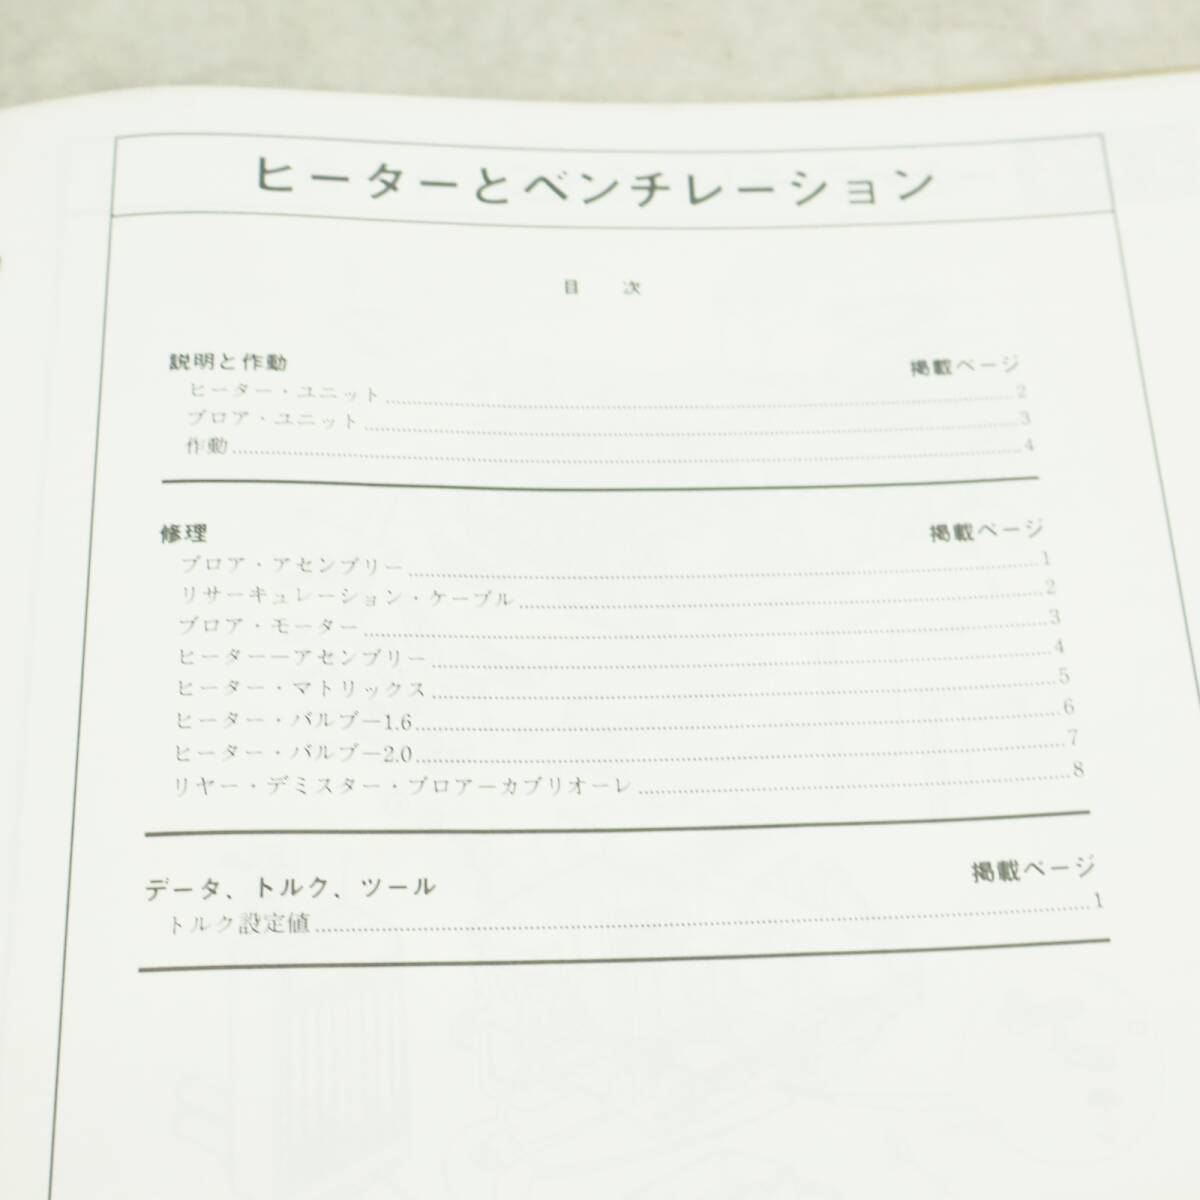 ヒーターとベンチレーション
目　次
説明と作動 掲載ページ
ヒーター・ユニット 2
ブロア・ユニット 3
作動 4
修理 掲載ページ
ブロア・アセンブリー 1
リサーキュレーション・ケーブル 2
ブロア・モーター 3
ヒーターーアセンブリー 4
ヒーター・マトリックス 5
ヒーター・バルブ－1.6 6
ヒーター・バルブ－2.0 7
リヤー・デミスター・ブロアーカブリオーレ 8
データ、トルク、ツール 掲載ページ
トルク設定値 1